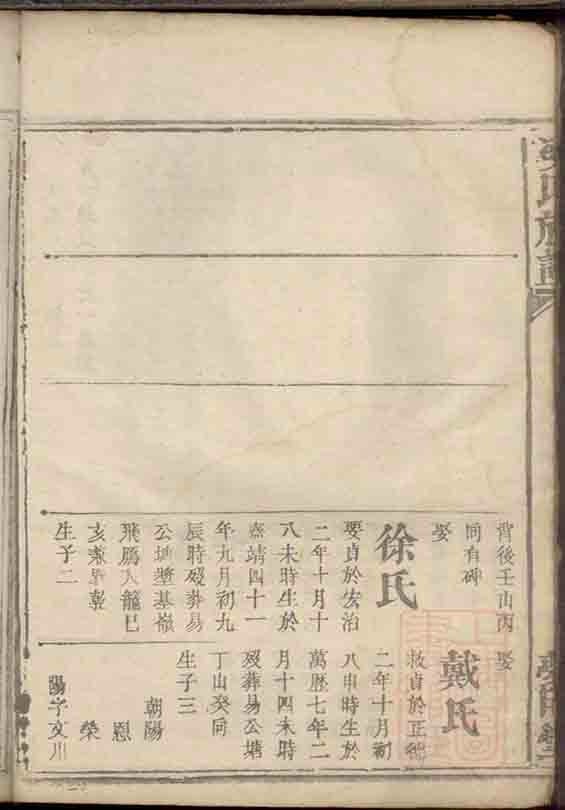 氏族譜
背後壬山丙
向有碑
娶
徐氏
要貞於宏治
二年十月十
八未時生於
嘉靖四十一
年九月初九
辰時歿葬易
公塘塟基嶺
飛鳳入籠巳
亥兼巽乾
生子二
娶
戴氏
救貞於正德
二年十月初
八申時生於
萬歷七年二
月十四未時
歿葬易公塘
丁山癸向
生子三
朝陽
恩
榮
陽字文川